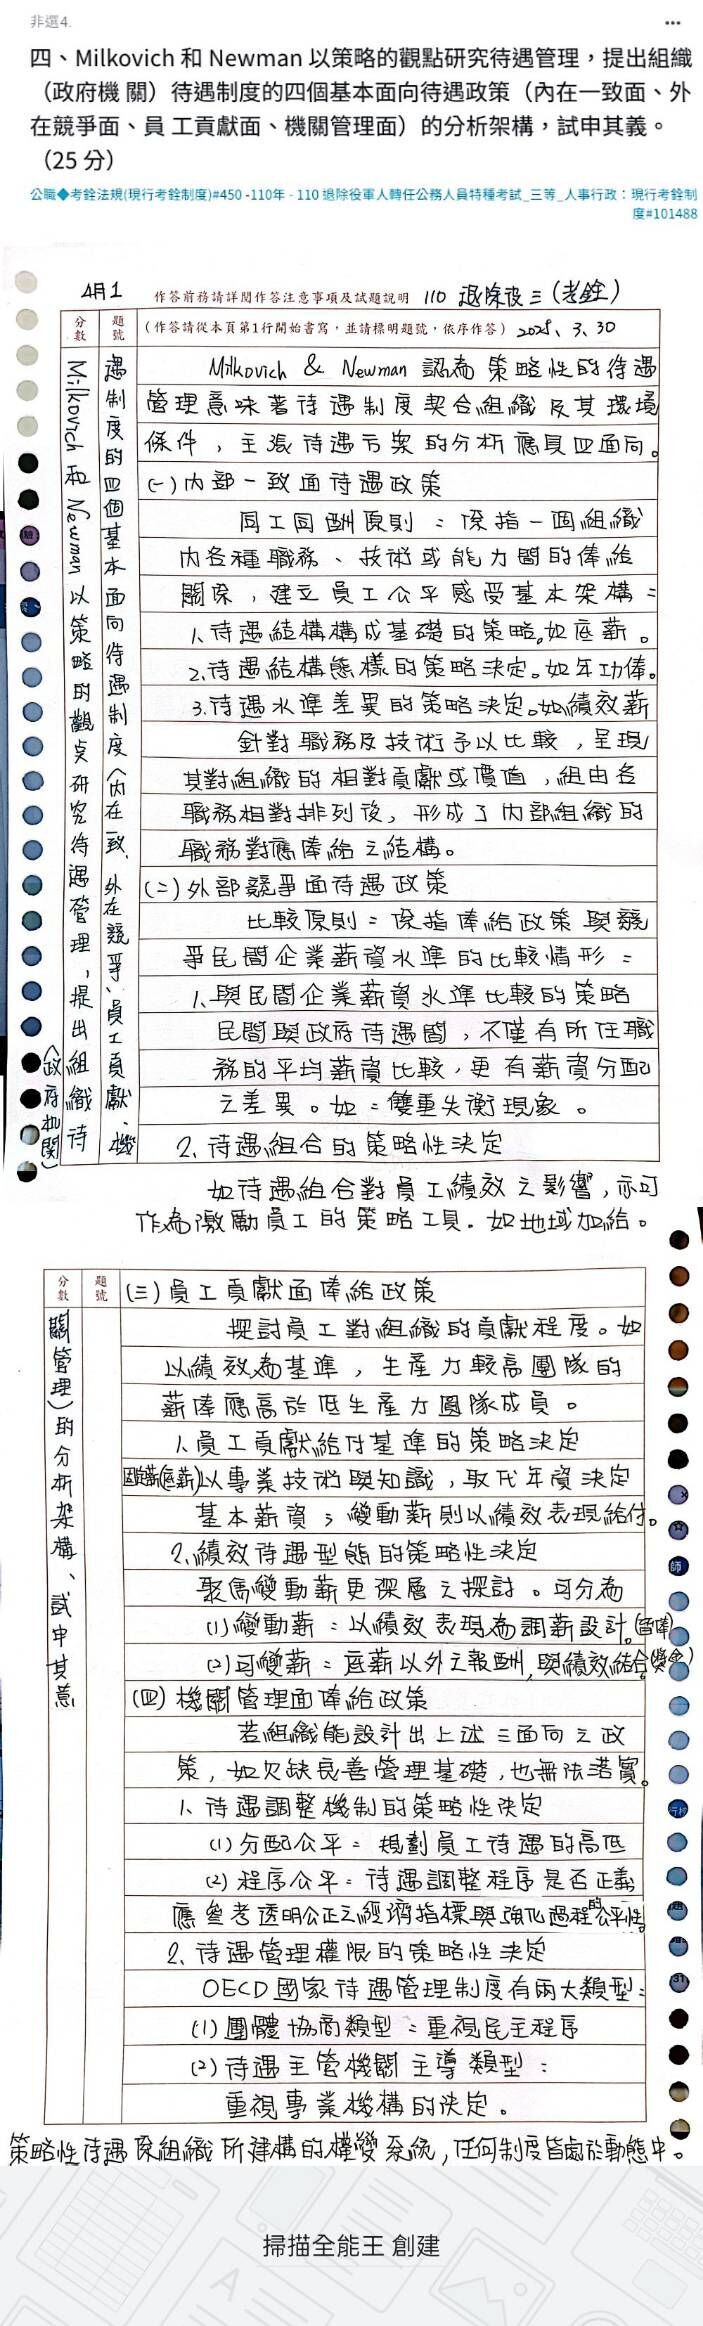 非選4.
四、Milkovich 和 Newman 以策略的觀點研究待遇管理，提出組織
（政府機 關）待遇制度的四個基本面向待遇政策（內在一致面、外
在競爭面、員 工貢獻面、機關管理面）的分析架構，試申其義。
（25 分）
公職◆考銓法規(現行考銓制度)#450 -110年 - 110 退除役軍人轉任公務人員特種考試_三等_人事行政：現行考銓制
度#101488
4月1
作答前務請詳閱作答注意事項及試題說明 110 退除役三(考銓)
分數
題號
(作答請從本頁第1行開始書寫，並請標明題號，依序作答)
3、30
Milkovich 和 Newman 以策略的觀点研究待遇管理，提出組織(政府机関)待
遇制度的四個基本面向待遇制度(內在一致、外在競爭、員工貢獻、機
Milkovich & Newman 認為策略性的待遇
管理意味著待遇制度契合組織及其環境
條件，主張待遇方案的分析應具四面向。
(一)內部一致面待遇政策
同工同酬原則：係指一個組織
內各種職務、技術或能力間的俸給
關係，建立員工公平感受基本架構：
1、待遇結構構成基礎的策略。如底薪。
2.待遇結構態樣的策略決定。如年功俸。
3.待遇水準差異的策略決定。如績效薪
針對職務及技術予以比較，呈現
其對組織的相對貢獻或價值，組由各
職務相對排列後，形成了內部組織的
職務對應俸給之結構。
(二)外部競爭面待遇政策
比較原則：係指俸給政策與競
爭民間企業薪資水準的比較情形：
1、與民間企業薪資水準比較的策略
民間與政府待遇間，不僅有所任職
務的平均薪資比較，更有薪資分配
之差異。如：雙重失衡現象。
2、待遇組合的策略性決定
如待遇組合對員工績效之影響，亦可
作為激勵員工的策略工具。如地域加給。
分數
題號
關管理)的分析架構、試申其意
(三)員工貢獻面俸給政策
探討員工對組織的貢獻程度。如
以績效為基準，生產力較高團隊的
薪俸應高於低生產力團隊成員。
1、員工貢獻給付基準的策略決定
(底薪)以專業技術與知識，取代年資決定
基本薪資；變動薪則以績效表現給付。
2、績效待遇型態的策略性決定
聚焦變動薪更深層之探討。可分為
(1)變動薪：以績效表現為調薪設計。(晉俸)
(2)可變薪：底薪以外之報酬，與績效結合。(獎金)
(四)機關管理面俸給政策
若組織能設計出上述三面向之政
策，如欠缺良善管理基礎，也無法落實。
1、待遇調整機制的策略性決定
(1)分配公平：規劃員工待遇的高低
(2)程序公平：待遇調整程序是否正義
應參考透明公正之經濟指標與強化過程的公平性。
2、待遇管理權限的策略性決定
OECD國家待遇管理制度有兩大類型：
(1)團體協商類型：重視民主程序
(2)待遇主管機關主導類型：
重視專業機構的決定。
策略性待遇係組織所建構的權變系統，任何制度皆處於動態中。
掃描全能王 創建